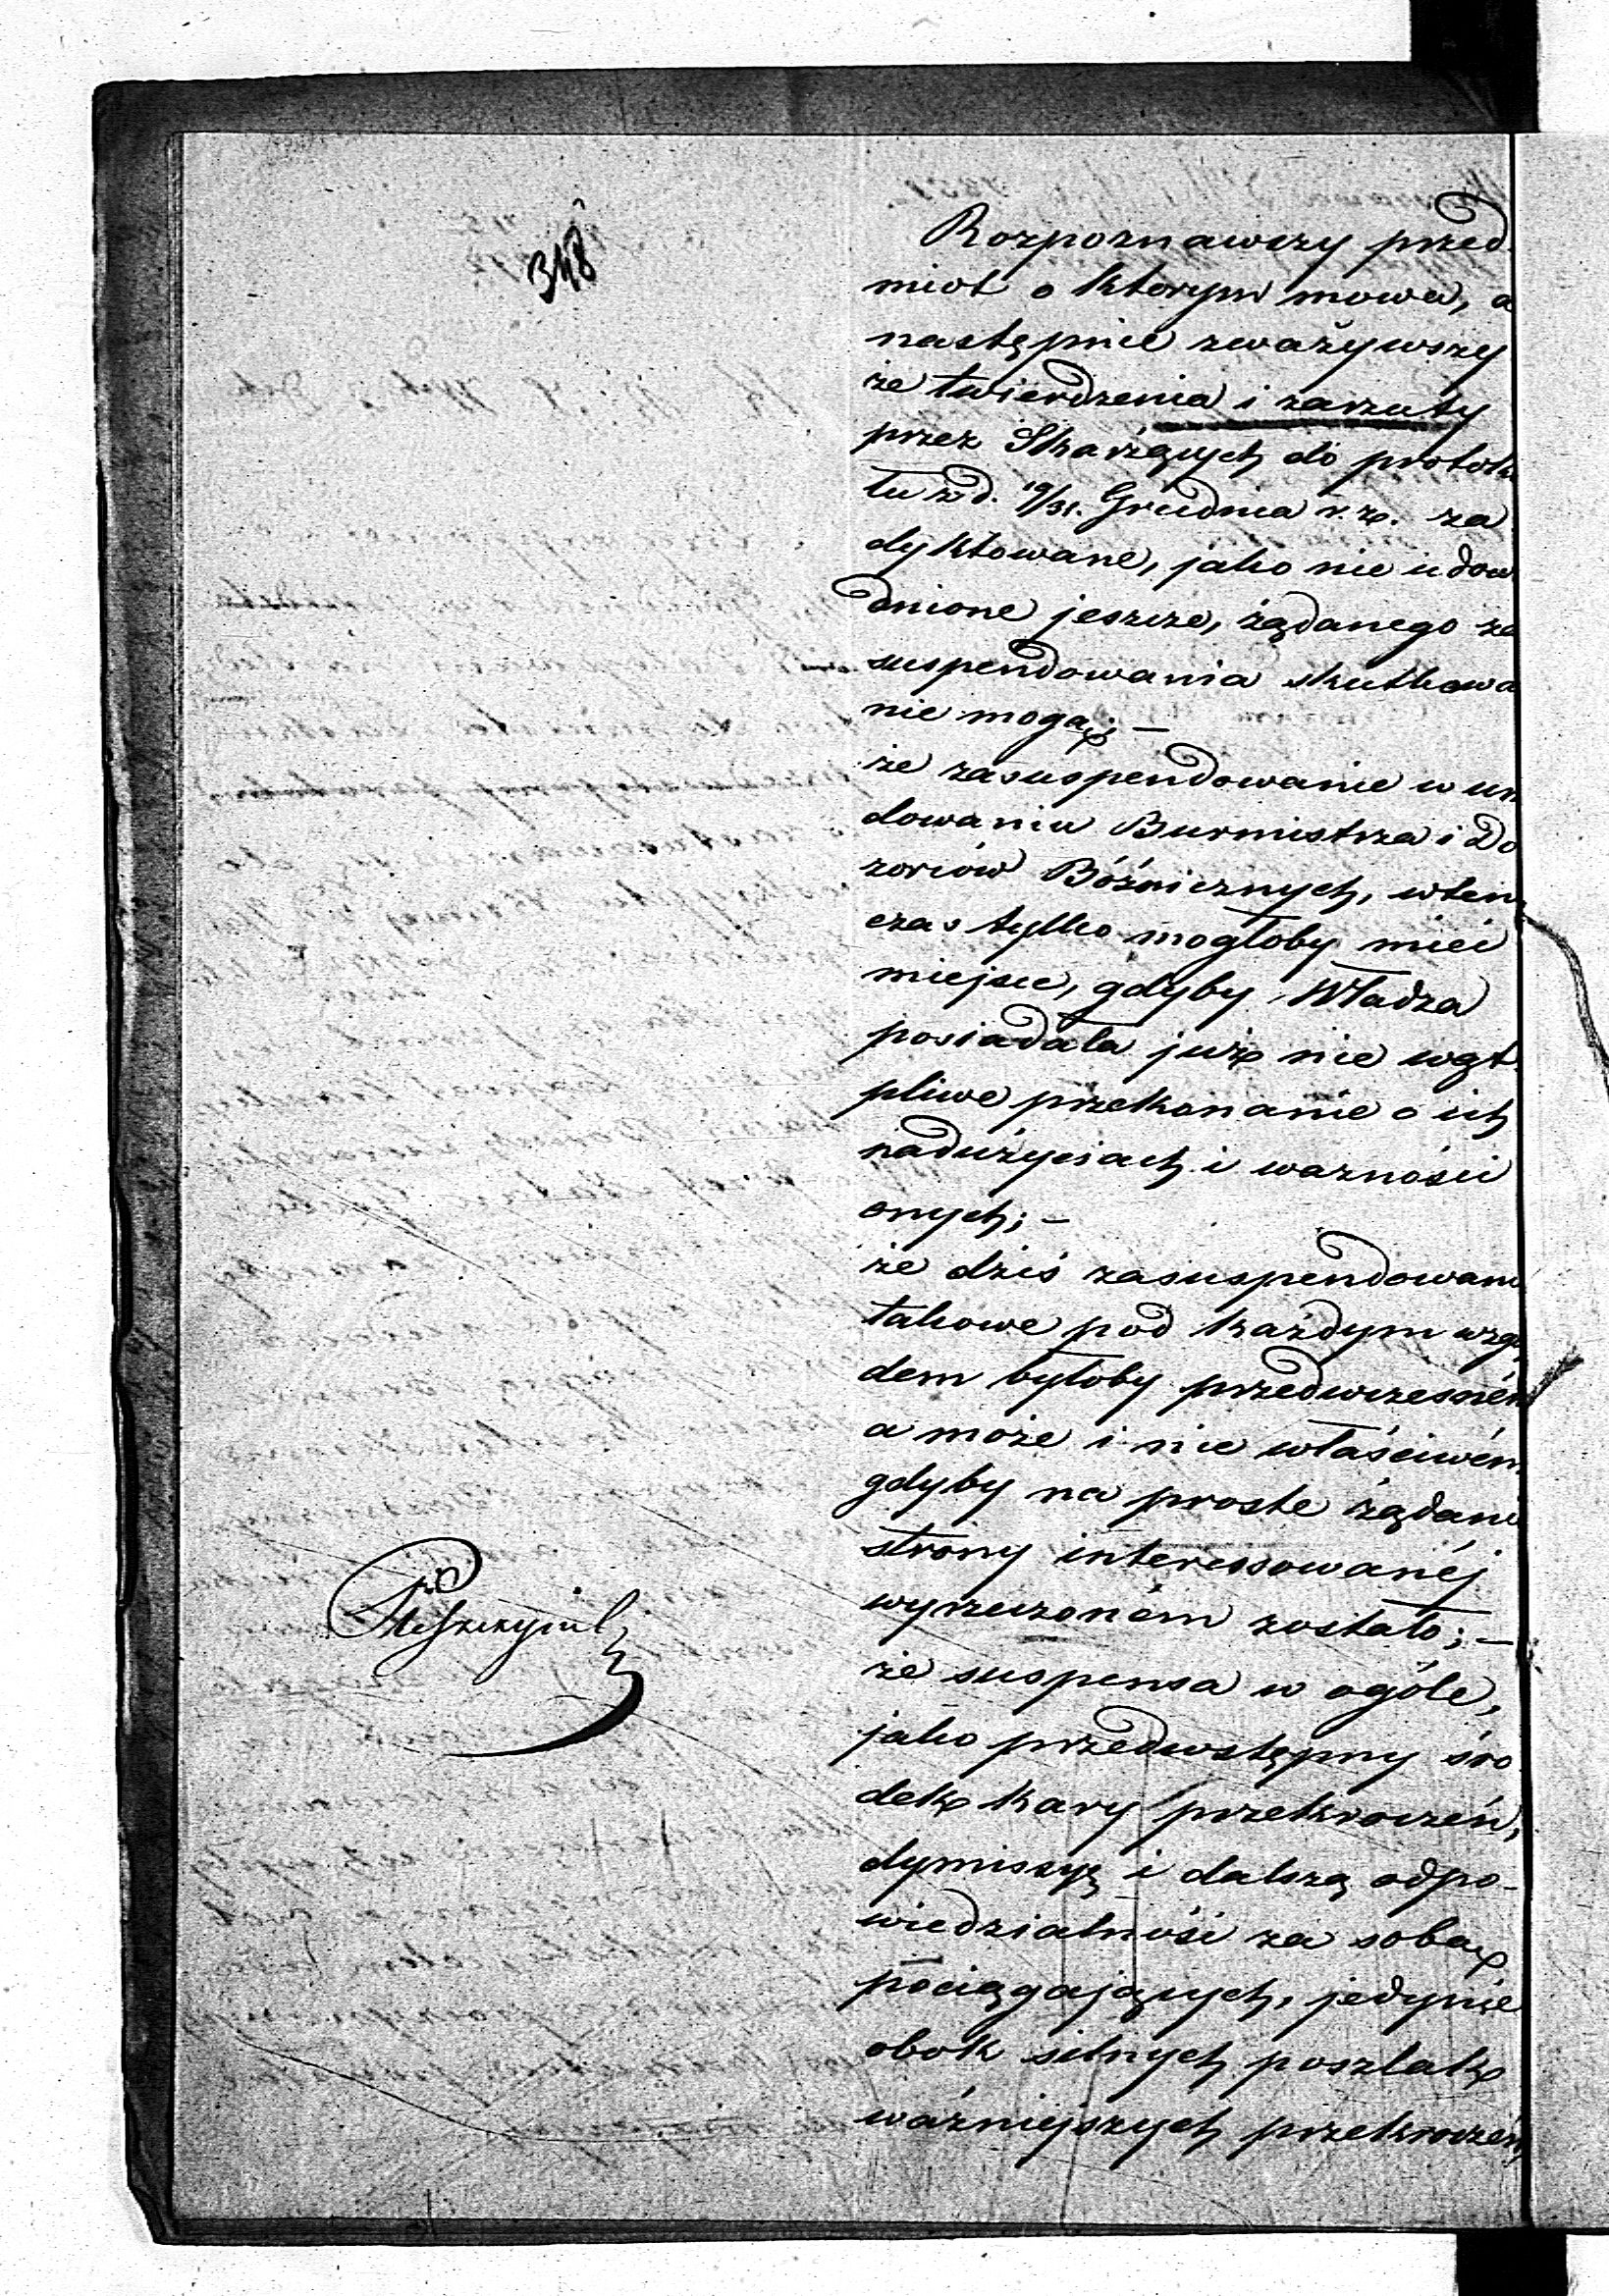 348
Rozpoznawszy przed
miot o którym mowa, a
następnie zważywszy
że twierdzenia i zarzuty
przez Skarżących do protok
łu z d. 19/31. Grudnia r. z. za
dyktowane, jako nie udow
dnione jeszcze, żądanego za
suspendowania skutkowa
nie mogą; —
że zasuspendowanie w urz
dowaniu Burmistrza i Do
zorców Bóżnicznych, wten
czas tylko mogłoby mieć
miejsce, gdyby Władza
posiadała już nie wąt
pliwe przekonanie o ich
nadużyciach i ważności
onych; —
że dziś zasuspendowani
takowe pod każdym wzgl
dem byłoby przedwczesném
a może i nie właściwém
gdyby na proste żądani
strony interessowanéj
wyrzeczoném zostało; —
że suspensa w ogóle,
jako przedwstępny śro
dek kary przekroczeń,
dymissyą i dalszą odpo-
wiedzialność za sobą
pociągających, jedynie
obok silnych poszlak
ważniejszych przekroczeń,